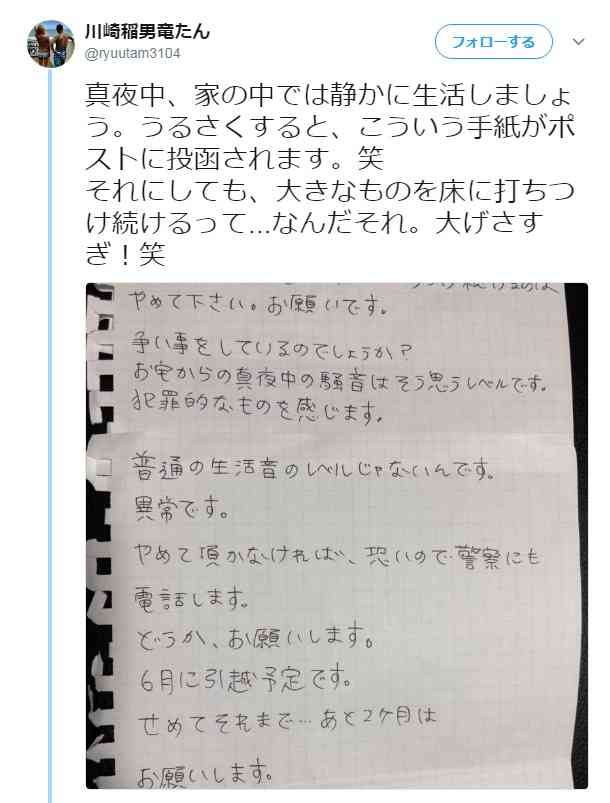 川崎稲男竜たん
@ryuutam3104
フォローする
真夜中、家の中では静かに生活しましょ
う。うるさくすると、こういう手紙がポ
ストに投函されます。笑
それにしても、大きなものを床に打ちつ
け続けるって...なんだそれ。大げさす
ぎ！笑
け続けるのは
やめて下さい。お願いです。
争い事をしているのでしょうか?
お宅からの真夜中の騒音はそう思うレベルです。
犯罪的なものを感じます。
普通の生活音のレベルじゃないんです。
異常です。
やめて頂かなければ、恐いので警察にも
電話します。
どうか、お願いします。
6月に引越予定です。
せめてそれまで…あと2ヶ月は
お願いします。